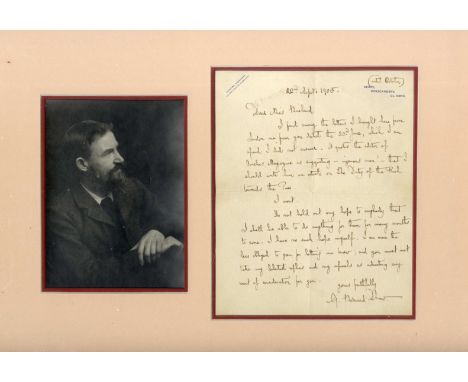 (until October)
DERRY,
ROSSCARBERY,
CO. CORK.
22nd Sept. 1905.
Dear Miss
I find among the letters I brought here from
London one from you dated the 23rd June, which I am
afraid I did not answer. I quote the editor of
Magazine as suggesting in " " that I
should write him an article on The Duty of the Rich
towards the Poor
I wont.
Do not hold out any hope to anybody that
I shall be able to do anything for them for many months
to come. I have no such hope myself. I am none the
less obliged to you for letting me know; and you must not
take my belated reply and my refusals as indicating any
want of consideration for you.
yours faithfully
G. Bernard Shaw